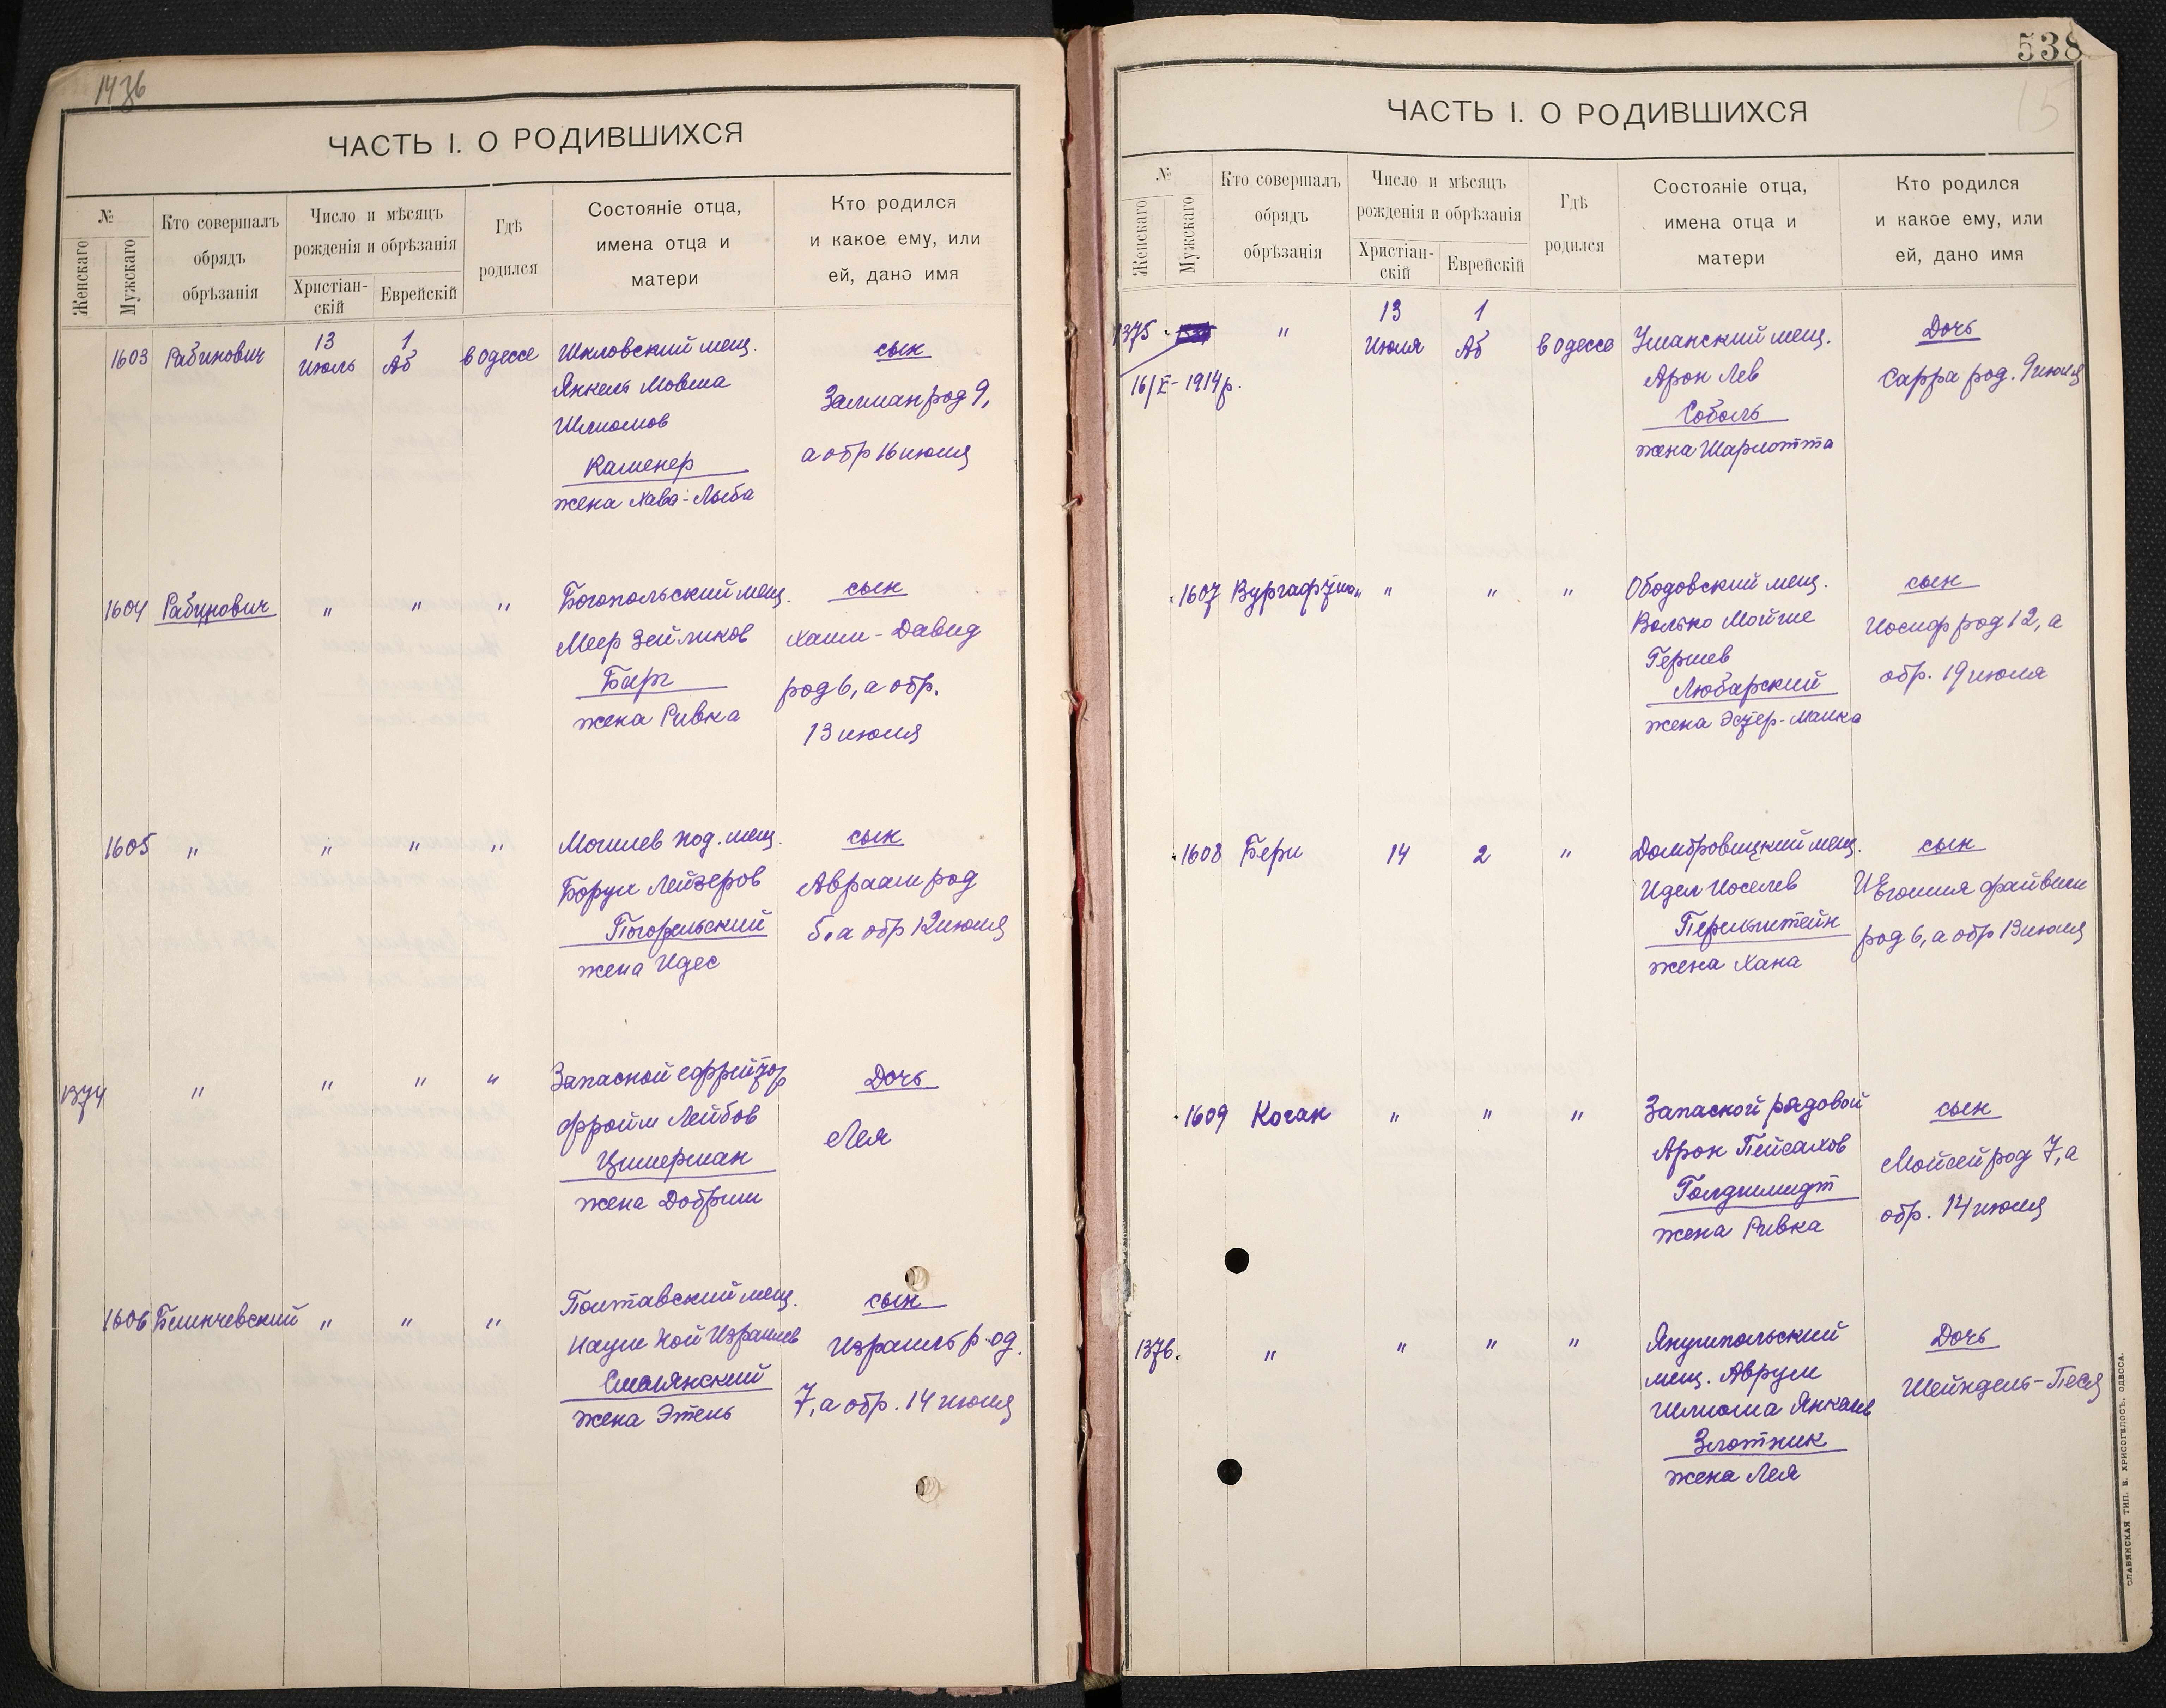 1436
ЧАСТЬ I. О РОДИВШИХСЯ
№
Женскаго
Мужскаго
Кто совершалъ
обрядъ
обрѣзанія
Число и мѣсяцъ
рожденія и обрѣзанія
Христіан-
скій
Еврейскій
Гдѣ
родился
Состояніе отца,
имена отца и
матери
Кто родился
и какое ему, или
ей, дано имя
1603 Рабинович 13 1 в Одессе Шкловский мещ. сын
Июль Аб
Янкель Мовша
Залман род 9,
Шлиомов
Каменер
а обр 16 июля
жена Хава-Лыба
1604 Рабинович " " " Богопольский мещ. сын
Меер Зейликов Хаим-Давид
Барг род 6, а обр.
жена Ривка
13 июля
1605 " " " " Могилев под. мещ. сын
Борух Лейзеров Авраам род
Погорельский 5, а обр 12 июля
жена Идес
1374 " " " " Запасной ефрейтор Дочь
Фройм Лейбов Лея
Цимерман
жена Добриш
1606 " " " Полтавский мещ. сын
Наум Ной Израилев Израиль род.
Смолянский 7, а обр. 14 июля
жена Этель
538
15
ЧАСТЬ I. О РОДИВШИХСЯ
№
Женскаго
Мужскаго
Кто совершалъ
обрядъ
обрѣзанія
Число и мѣсяцъ
рожденія и обрѣзанія
Христіан-
скій
Еврейскій
Гдѣ
родился
Состояніе отца,
имена отца и
матери
Кто родился
и какое ему, или
ей, дано имя
1375 " 13 1 в Одессе Уманский мещ. Дочь
Июля Аб
16/X - 1914 р. Арон Лев Сарра род. 9 июля
Соболь
жена Шарлотта
1607 " " " Ободовский мещ. сын
Волько Мойше Иосиф род 12, а
Гершев
обр. 19 июля
Любарский
жена Эстер-Малка
1608 Бери 14 2 " Домбровицкий мещ. сын
Идел Иоселев Файвиш
Перельштейн род 6, а обр 13 июля
жена Хана
1609 Коган " " " Запасной рядовой сын
Арон Пейсахов Мойсей род 7, а
Голдшмидт обр. 14 июля
жена Ривка
1376. " " " " Янушпольский Дочь
мещ. Аврум Шейндель-Песя
Шлиома Янкелев
Злотник
жена Лея
СЛАВЯНСКАЯ ТИП. Н. ХРИСОГЕЛОСЪ, ОДЕССА.